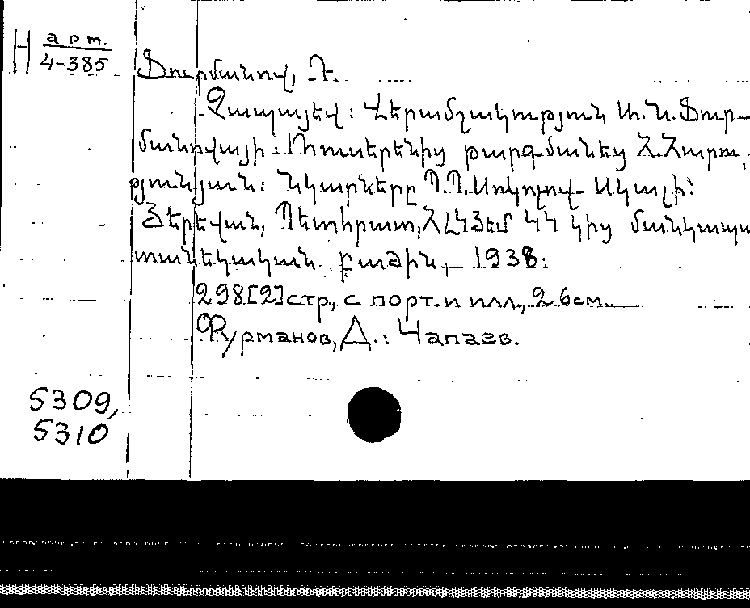 Н арт.
4-385
Ֆուրմանով, Դ.
Չապայեվ: Վերամշակություն Ա.Ն. Ֆուր-
մանովայի: Ռուսերենից թարգմանեց Հ. Հարու-
թյունյան: Նկարները Պ.Պ. Սոկոլով-Սկալի:
Յերեվան, Պետհրատ, ՀԼԿՅԵՄ ԿԿ կից մանկապա
տանեկական բաժին, 1938:
298[2]стр., с порт. и илл., 26см.
Фурманов, Д.: Чапаев.
5309,
5310